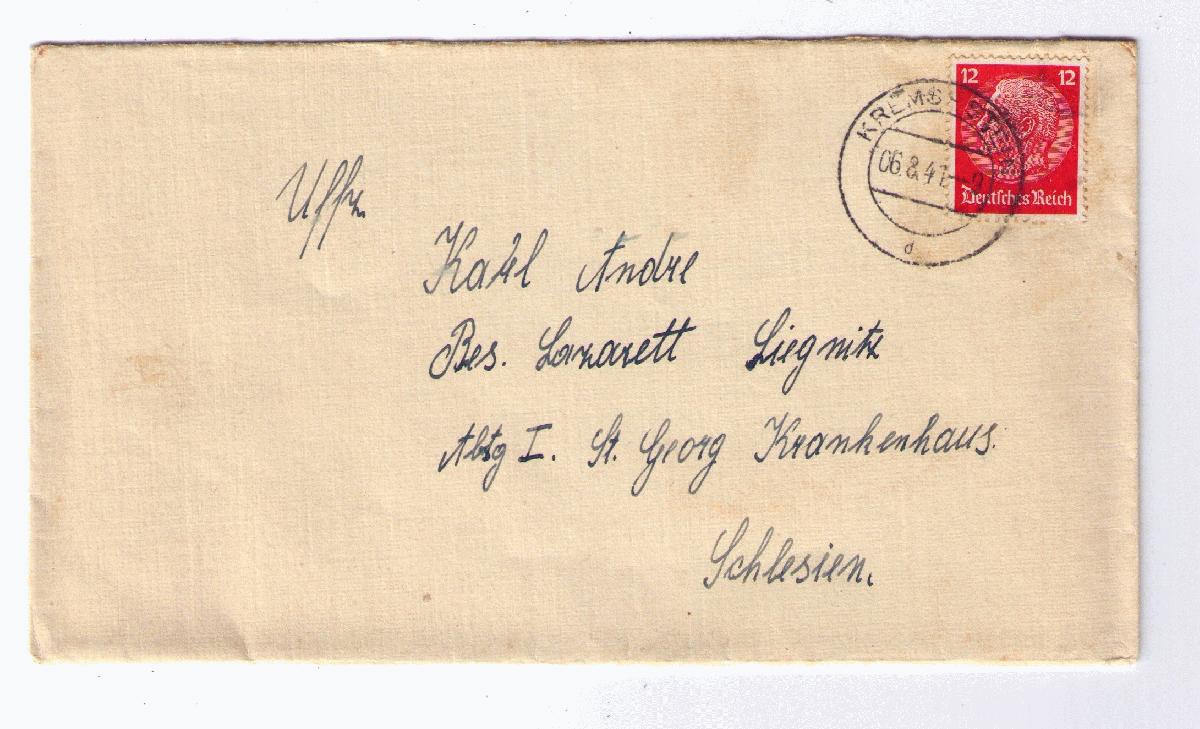 12 12
Deutsches Reich
KREMS
06.8.41
d
Uffz.
Karl Andre
Bes. Lazarett Liegnitz
Abtg I. St. Georg Krankenhaus.
Schlesien.